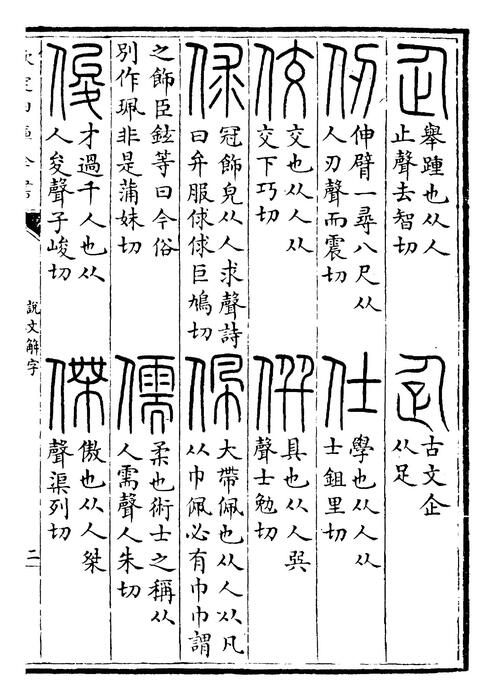 企
舉踵也从人
止聲去智切
古文企
从足
仞
伸臂一尋八尺从
人刃聲而震切
仕
學也从人从
士鉏里切
佼
交也从人从
交下巧切
僎
具也从人巽
聲士勉切
俅
冠飾皃从人求聲詩
曰弁服俅俅巨鳩切
佩
大帶佩也从人从凡
从巾佩必有巾巾謂
之飾臣鉉等曰今俗
別作珮非是蒲妹切
儒
柔也術士之稱从
人需聲人朱切
俊
才過千人也从
人夋聲子峻切
傑
傲也从人桀
聲渠列切
說文解字
二